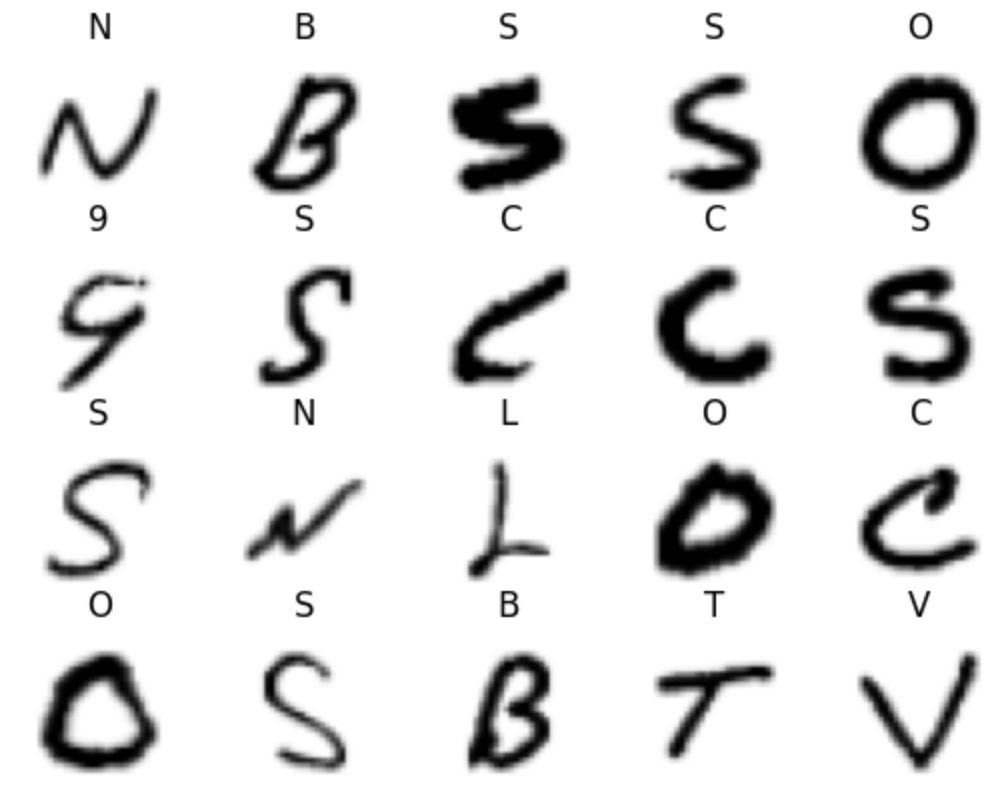 N B S S O
N B S S O
9 S C C S
9 S C C S
S N L O C
S N L O C
O S B T V
O S B T V